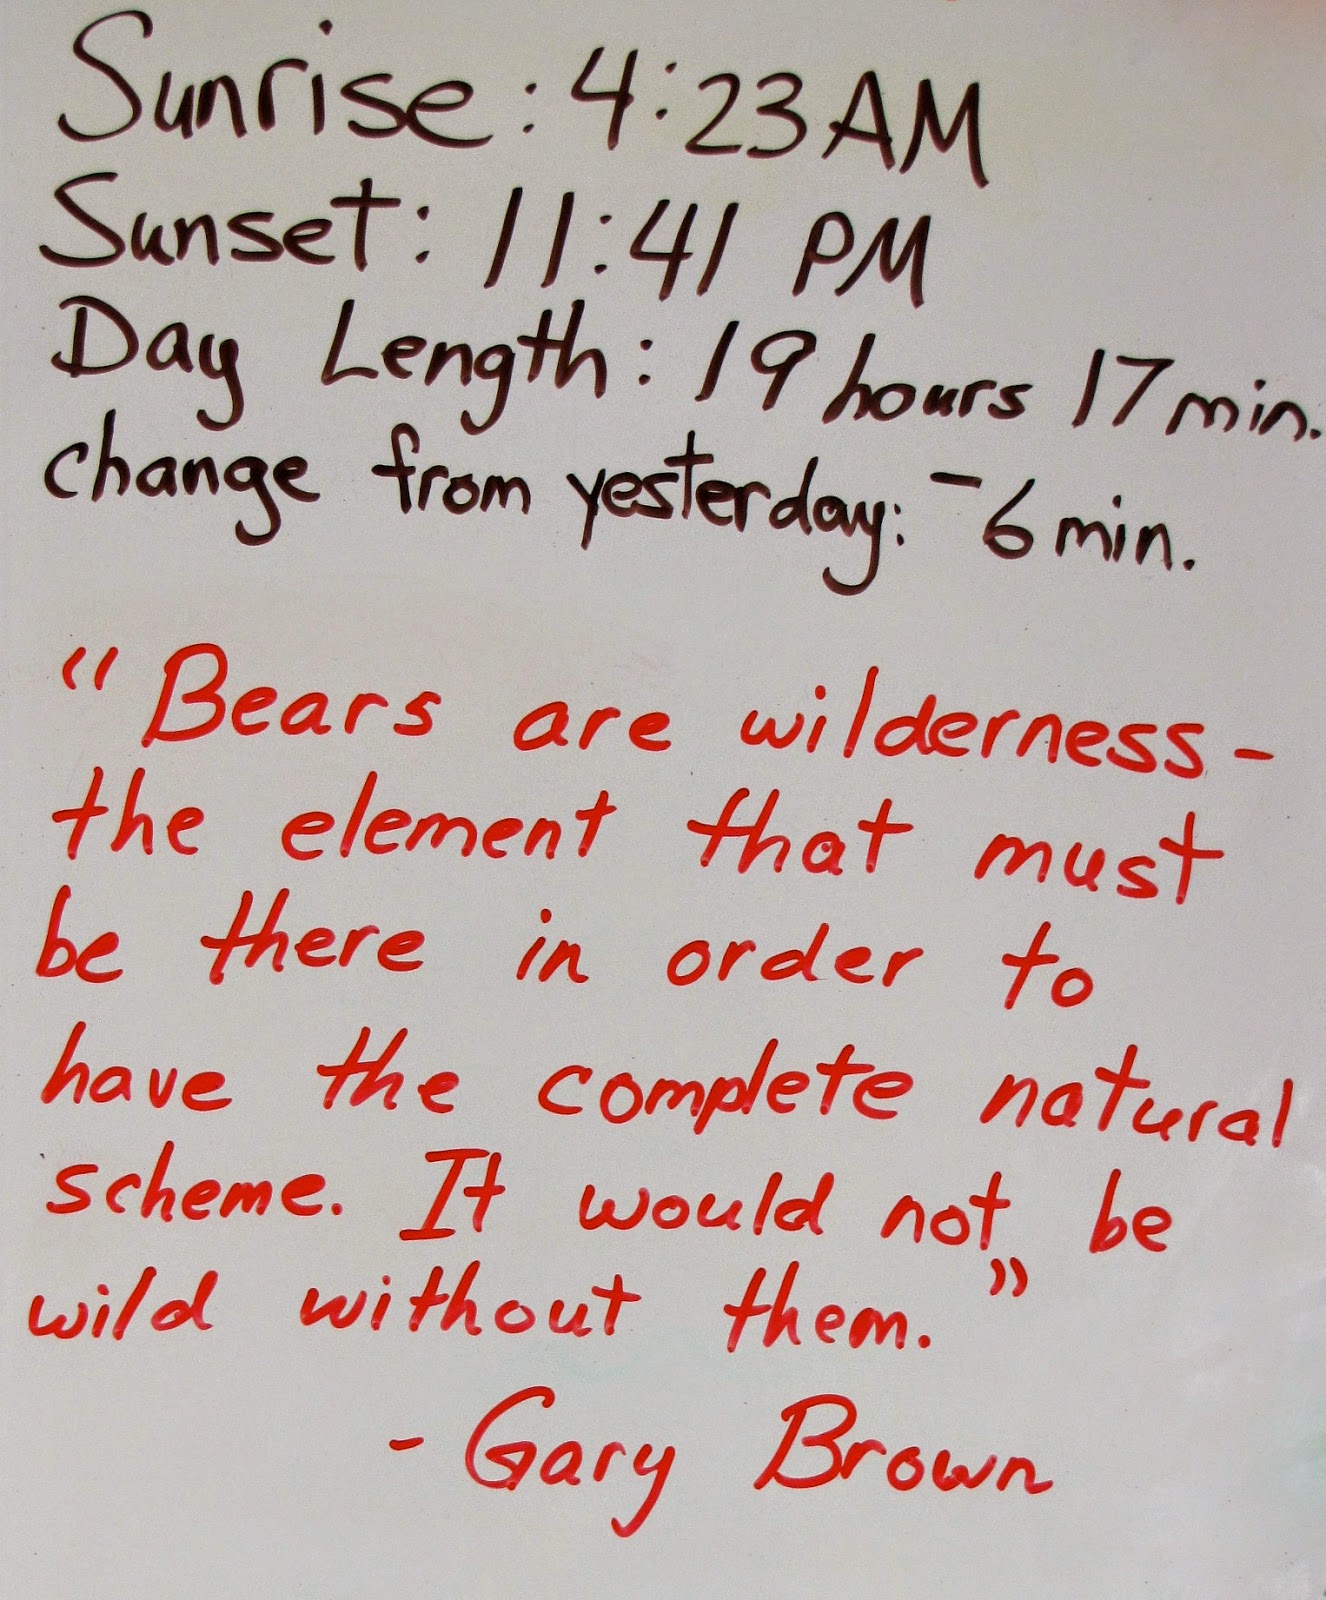 Sunrise: 4:23 AM
Sunset: 11:41 PM
Day Length: 19 hours 17 min.
change from yesterday: -6 min.
"Bears are wilderness -
the element that must
be there in order to
have the complete natural
scheme. It would not be
wild without them."
- Gary Brown